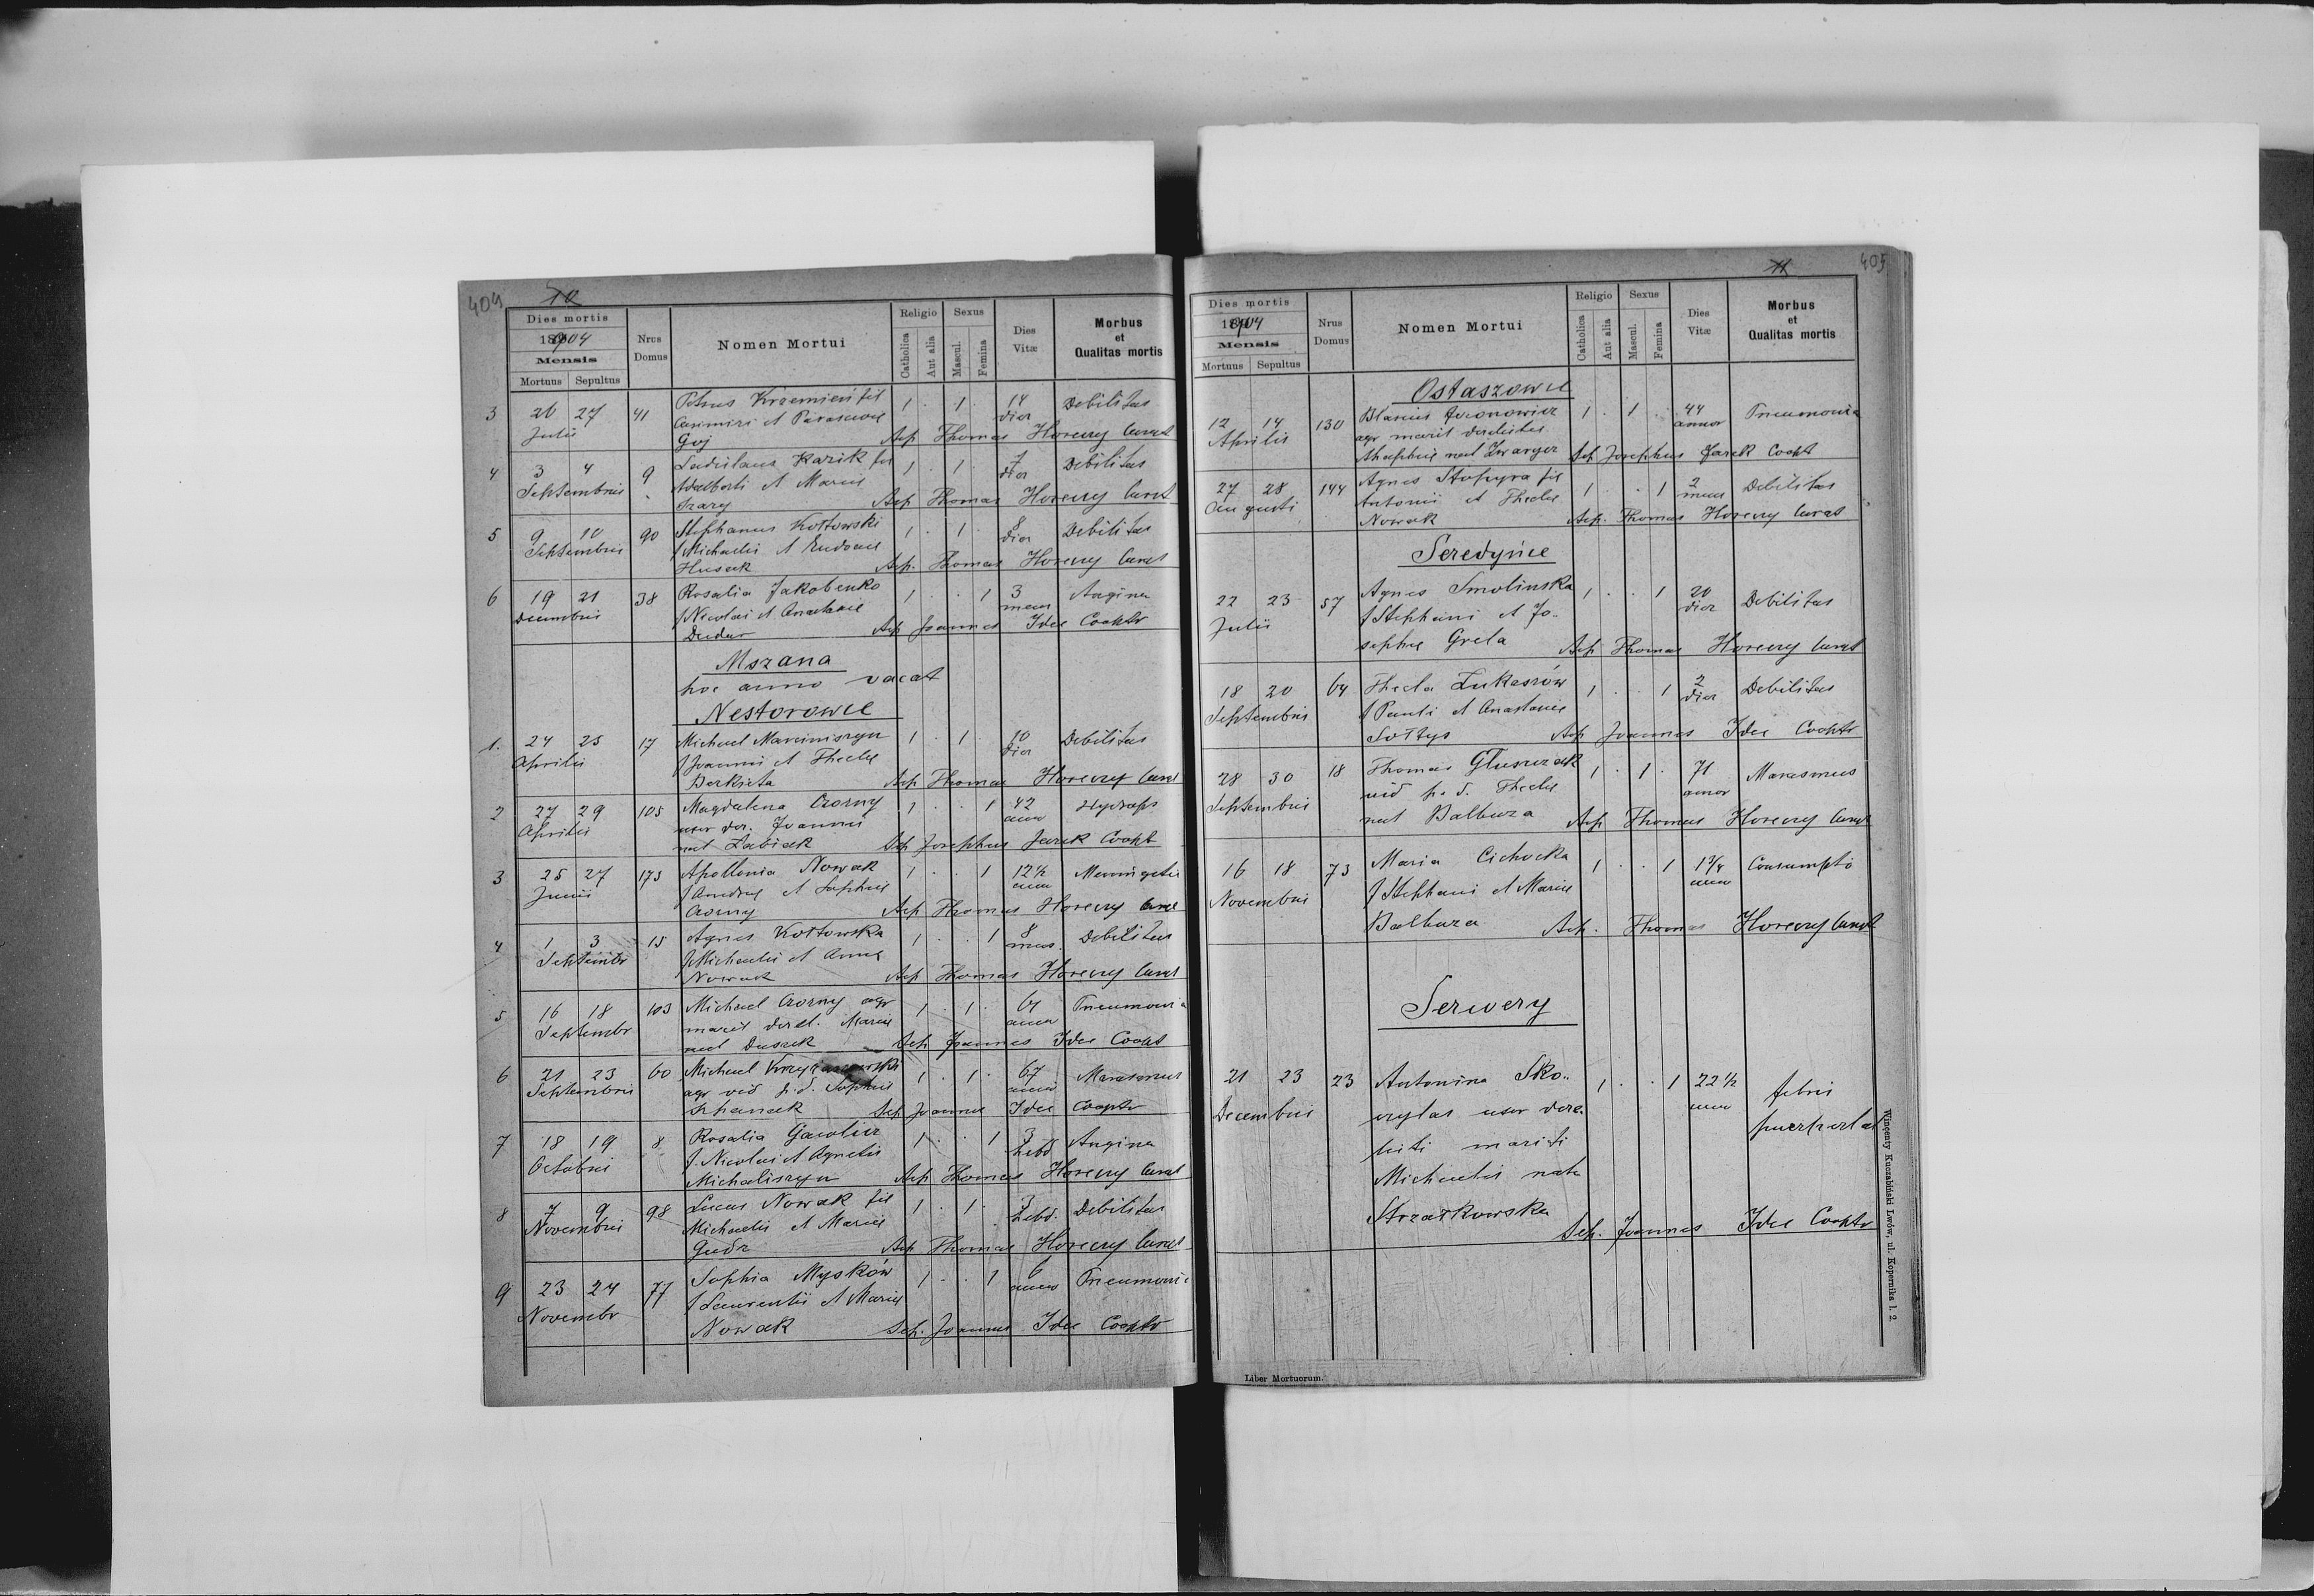 404 10
Dies mortis
1904
Mensis
Mortuus Sepultus
Nrus Domus
Nomen Mortui
Religio
Catholica
Aut alia
Sexus
Mascul.
Femina
Dies Vitæ
Morbus et Qualitas mortis
3 26 27 41 Petrus Krzemień fil 1 . 1 . 14 Debilitas
Julii Casimiri et Parascevae dier
Goj Sep Thomas Horeczy Curat
4 3 4 9 Ladislaus Kazik fil 1 . 1 . 7 Debilitas
Septembris Adalberti et Mariae dier
Szary Sep Thomas Horeczy Curat
5 9 10 90 Stephanus Kottowski 1 . 1 . 8 Debilitas
Septembris f Michaelis et Eudociae dier
Husak Sep. Thomas Horeczy Curat
6 19 21 38 Rosalia Jakobenko 1 . . 1 3 Angina
Decembris f Nicolai et Anastasiae mens
Dudar Sep Joannes Idec Cooptr
Mszana
hoc anno vacat
Nestorowce
1. 24 25 17 Michael Marciniszyn 1 . 1 . 10 Debilitas
Aprilis f Joannis et Theclae dier
Sep Thomas Horeczy Curat
2 27 29 105 Magdalena Czorny 1 . . 1 42 Hydrops
Aprilis uxor der. Joannis annor
nat Babiak Sep Josephus Jarek Coopt
3 25 27 173 Apollonia Nowak 1 . . 1 12½ Meningitis
Junii f Andreae et Sophiae annor
Czorny Sep Thomas Horeczy Curat
4 1 3 15 Agnes Kottowska 1 . . 1 8 Debilitas
Septembr f Michaelis et Annae mens.
Nowak Sep Thomas Horeczy Curat
5 16 18 103 Michael Czorny agr 1 . 1 . 61 Pneumonia
Septembr marit derel. Mariae annor
nat Duszek Sep Joannes Idec Coopt
6 21 23 60 Michael 1 . 1 . 67 Marasmus
Septembris agr vid p. d. Sophiae annor
Sep Joannes Idec Cooptr
7 18 19 8 Rosalia Gawlicz 1 . . 1 3 Angina
Octobris f. Nicolai et Agnetis hebd
Michaliszyn Sep Thomas Horeczy Curat
8 7 9 98 Lucas Nowak fil 1 . 1 . 3 Debilitas
Novembris Michaelis et Mariae hebd.
Gudz Sep Thomas Horeczy Curat
9 23 24 77 Sophia Mysków 1 . . 1 6 Pneumonia
Novembr f Laurentii et Mariae annor
Nowak Sep. Joannes Idec Cooptr
11 405
Dies mortis
1904
Mensis
Mortuus Sepultus
Nrus Domus
Nomen Mortui
Religio
Catholica
Aut alia
Sexus
Mascul.
Femina
Dies Vitæ
Morbus et Qualitas mortis
Ostaszowce
12 14 130 Blasius 1 . 1 . 44 Pneumonia
Aprilis agr marit derelictae annor
nat Zwarycz Sep Josephus Jarek Coopt
27 28 144 Agnes Stupyra fil 1 . . 1 2 Debilitas
Augusti Antonii et Theclae mens
Nowak Sep. Thomas Horeczy Curat
Seredyńce
22 23 57 Agnes Smolinska 1 . . 1 20 Debilitas
Julii f Stephani et Jo- dier
sephae Greła Sep Thomas Horeczy Curat
18 20 64 Thecla Łukaszów 1 . . 1 2 Debilitas
Septembris f Pauli et Anastasiae dier
Sołtys Sep Joannes Idec Cooptr
28 30 18 Thomas Głuszczak 1 . 1 . 71 Marasmus
Septembris vid p. d. Theclae annor
nat Balbuza Sep Thomas Horeczy Curat
16 18 73 Maria Cichocka 1 . . 1 1¾ Consumptio
Novembris f Stephani et Mariae annor
Balbuza Sep. Thomas Horeczy Curat
Serwery
21 23 23 Antonina Sko- 1 . . 1 22½ febris
Decembris rylas uxor dere- annor puerperal
licti mariti
Michaelis nata
Strzałkowska Sep. Joannes Idec Cooptr
Liber Mortuorum.
Wincenty Kuczabiński Lwów, ul. Kopernika l. 2.